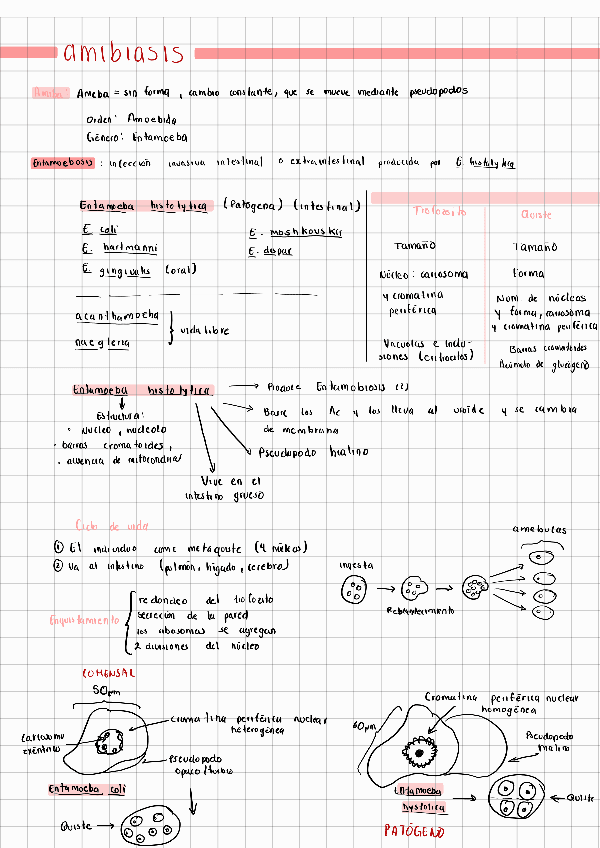 amibiasis
Amiba: Ameba = sin forma, cambio constante, que se mueve mediante pseudopodos
Orden: Amoebida
Género: Entamoeba
Entamoebosis: infección invasiva intestinal o extraintestinal producida por E. histolytica
Entamoeba histolytica (Patógena) (intestinal)
E. coli
E. moshkovskii
E. hartmanni
E. dispar
E. gingivalis (oral)
acanthamoeba
naegleria
vida libre
Trofozoito
Quiste
Tamaño
Tamaño
Núcleo: cariosoma
y cromatina
periférica
Forma
Num de núcleos
y forma, cariosoma
y cromatina periférica
Vacuolas e inclu-
siones (eritrocitos)
Barras cromatoides
Acúmulo de glucógeno
Entamoeba histolytica
Produce Entamobiosis (2)
Estructura:
• Núcleo, nucleolo
• barras cromatoides,
• ausencia de mitocondrias
Barre los Ac y los lleva al uroide y se cambia
de membrana
Pseudopodo hialino
Vive en el
intestino grueso
Ciclo de vida
① El individuo come metaquiste (4 núcleos)
② Va al intestino (pulmón, hígado, cerebro)
ingesta
Redondeamiento
amebulas
Enquistamiento
redondeo del trofozoito
secreción de la pared
los ribosomas se agregan
2 divisiones del núcleo
COMENSAL
50µm
Cariosoma
excéntrico
cromatina periférica nuclear
heterogénea
Pseudopodo
opaco/turbio
Entamoeba coli
Quiste
Cromatina periférica nuclear
homogénea
60µm
Pseudopodo
hialino
Entamoeba
hystolica
Quiste
PATÓGENO